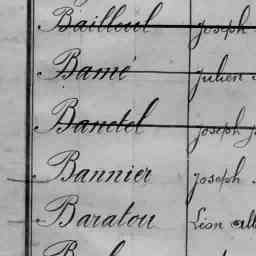 Bailleul Joseph
Bamé Julien
Banctel Joseph
Bannier Joseph
Baratou Léon